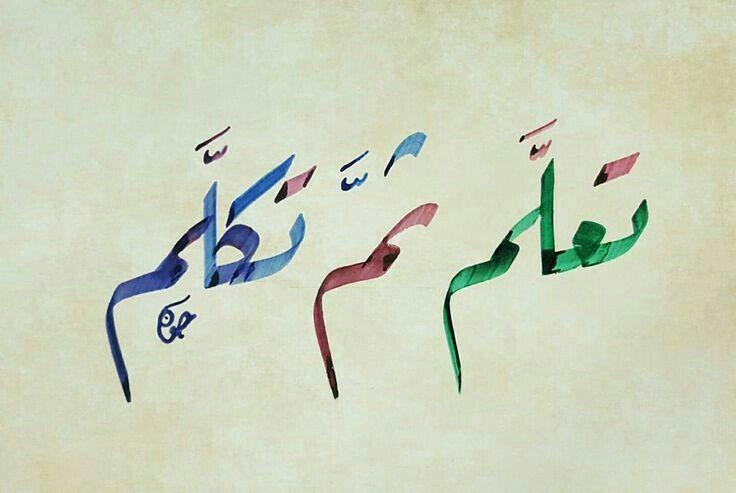 تعلَّم ثمَّ تكلَّم